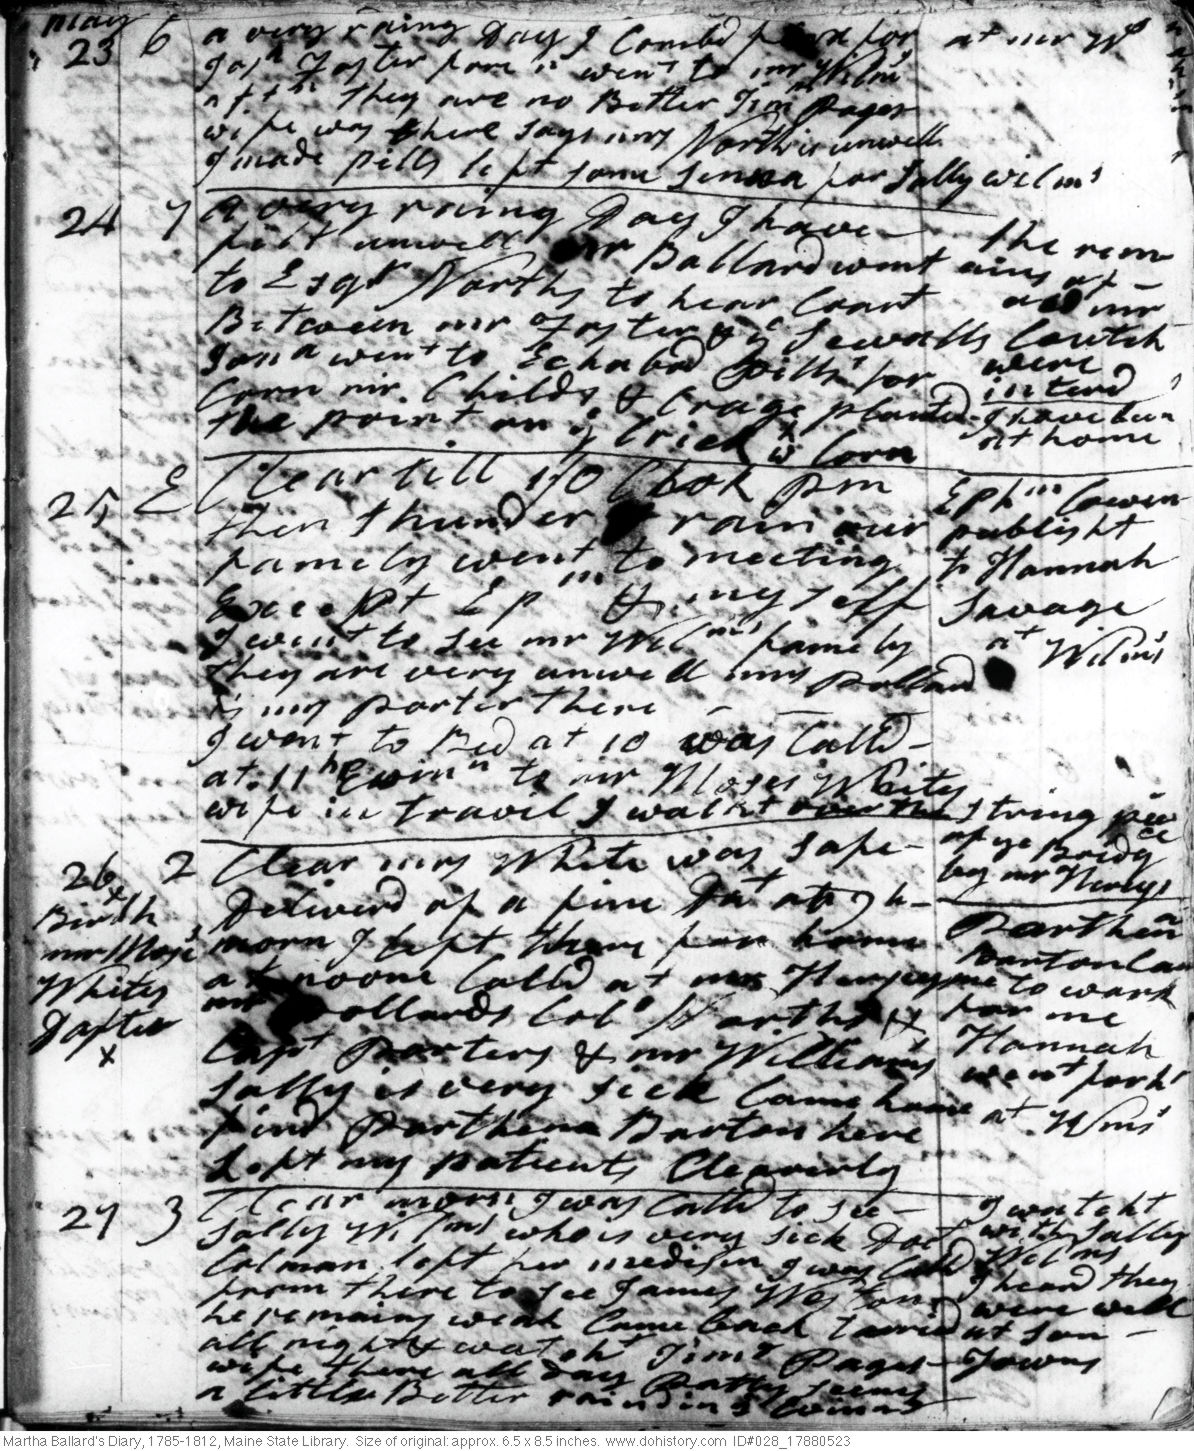 may
23 6 a very rainy Day I Combd flax for at mr Wms
Josh Foster forn n went to mr Wilms
aftn they are no Better Timo Pages
wife was there says mrs North is unwell
I made pills left some senna for Sally wilms
24 7 a very rainy Day I have the rem
felt unwell mr Ballard went ains of
to Esqr Norths to hear Coart mr
Between mr Foster & ye Sewalls Coutch
Jona went to Echabod Pitts for were
Corn mr Childs & Crage planted interd
the point on ye Crick wt Corn I have been
at home
25 E Clear till 1/0 Clok pm Ephm Cowen
then thunder & rain our publisht
family went to meeting to Hannah
Except Epm & my self Savage
I went to see mr Wilms famely at Wilms
they are very unwell mrs pollard
& mrs porter there
I went to Bed at 10 was Calld
at 11 h Evinn to mr Moses Whites
wife in travil I walkt over the string piece
of ye bridg
by mr Hersys
26 2 Clear mrs White was safe
x Birth Deliverd of a fine Datr at 7 h
mr Moses morn I left there for home
Whites at noone Calld at mrs Herseys
Dafter mr Pollards Colo Norths &
x Capt Porters & mr Williams
Sally is very sick Came home
find Parthena Barton here
Left my patients Cleaverly
Parthena
Barton Ca
me to work
for me
Hannah
went forks
at Wms
27 3 Clear morn I was Calld to see
Sally Wilms who is very sick Doct
Colman left her medisin I was Calld
from there to see James Weston
he remains weak Came back tarried
all night & watcht Timo Pages
wife there all Day Patty seems
a little Better
I watcht
with Sally
Wilms
I heard they
were well
at Son
Towns
Martha Ballard's Diary, 1785-1812, Maine State Library. Size of original: approx. 6.5 x 8.5 inches. www.dohistory.com ID#028_17880523